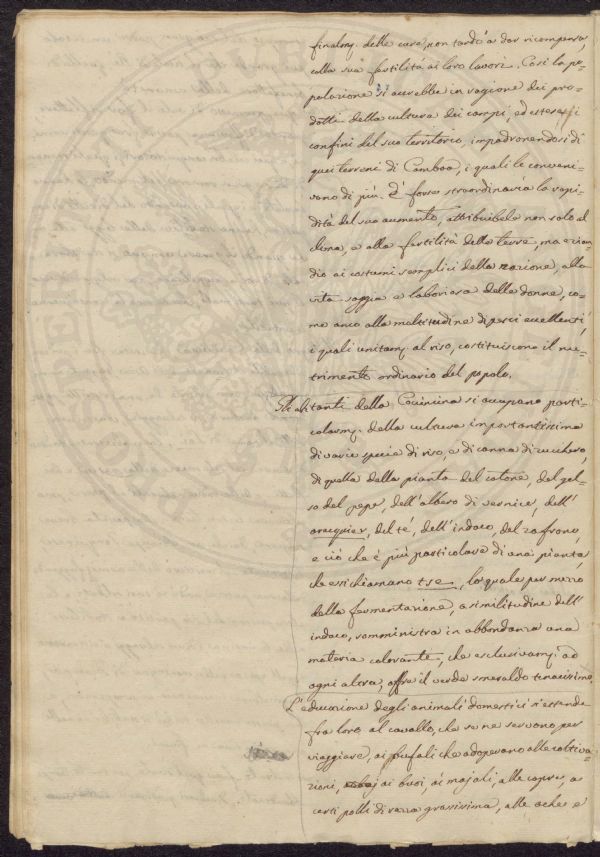 finalm: delle cure, non tardò a dar ricompensa,
colla sua fertilità ai loro lavori. Così la po-
polazione si accrebbe in ragione dei pro-
dotti della cultura dei campi, ed estese i
confini del suo territorio, impadronendosi di
quei terreni di Camboa, i quali le conveni-
vano di più. È forse straordinaria la rapi-
dità del suo aumento, attribuibile non solo al
clima, e alla fertilità delle terre, ma ezian-
dio ai costumi semplici della nazione, alla
vita saggia e laboriosa delle donne, co-
me anco alla moltitudine di pesci eccellenti,
i quali unitam: al riso, costituiscono il nu-
trimento ordinario del popolo.
Gli abitanti della Cocincina si occupano parti-
colarm: della cultura importantissima
di varie specie di riso, e di canna di zucchero,
di quella della pianta del cotone, del gel-
so del pepe, dell'albero di vernice, dell'
arequier, del té, dell'indaco, del zafrano,
e ciò che è più particolare di una pianta,
che essi chiamano tse, la quale per mezzo
della fermentazione, a similitudine dell'
indaco, somministra in abbondanza una
materia colorante, che esclusivam: ad
ogni altra, offre il verde smeraldo tenacissimo.
L'educazione degli animali domestici si estende
fra loro al cavallo, che se ne servono per
viaggiare, ai bufali che adoperano alle coltiva-
zioni, ai buoi, ai majali, alle capre, a
certi polli di razza grassissima, alle oche e